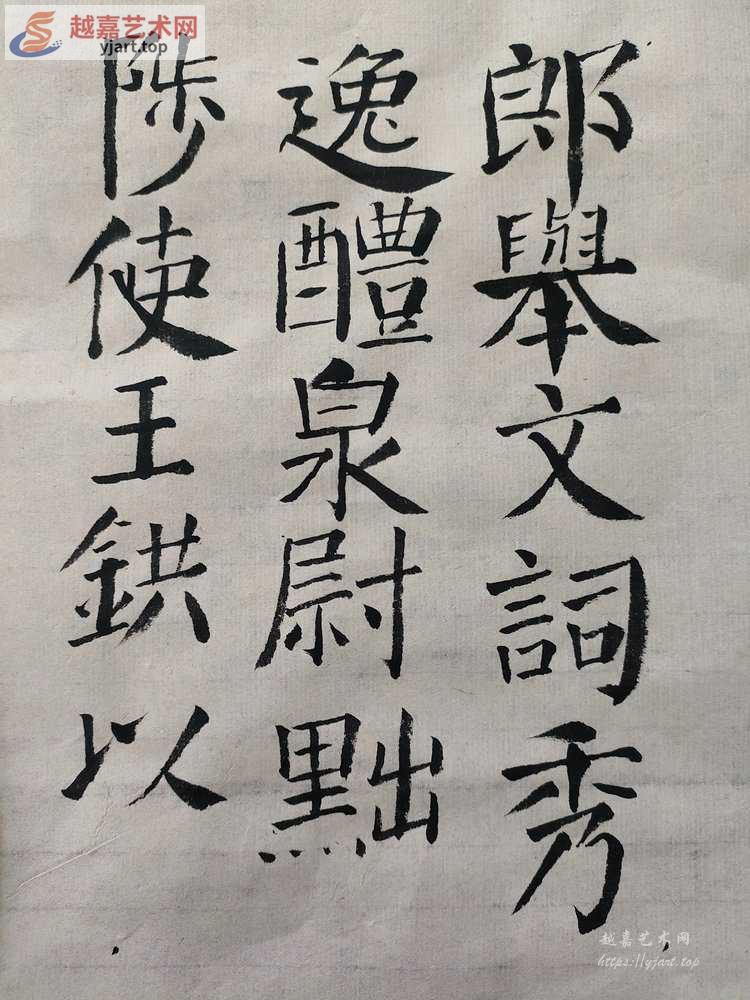 郎舉文詞秀
逸醴泉尉黜
陟使王鉷以
越嘉艺术网
yjart.top
越嘉艺术网
https://yjart.top